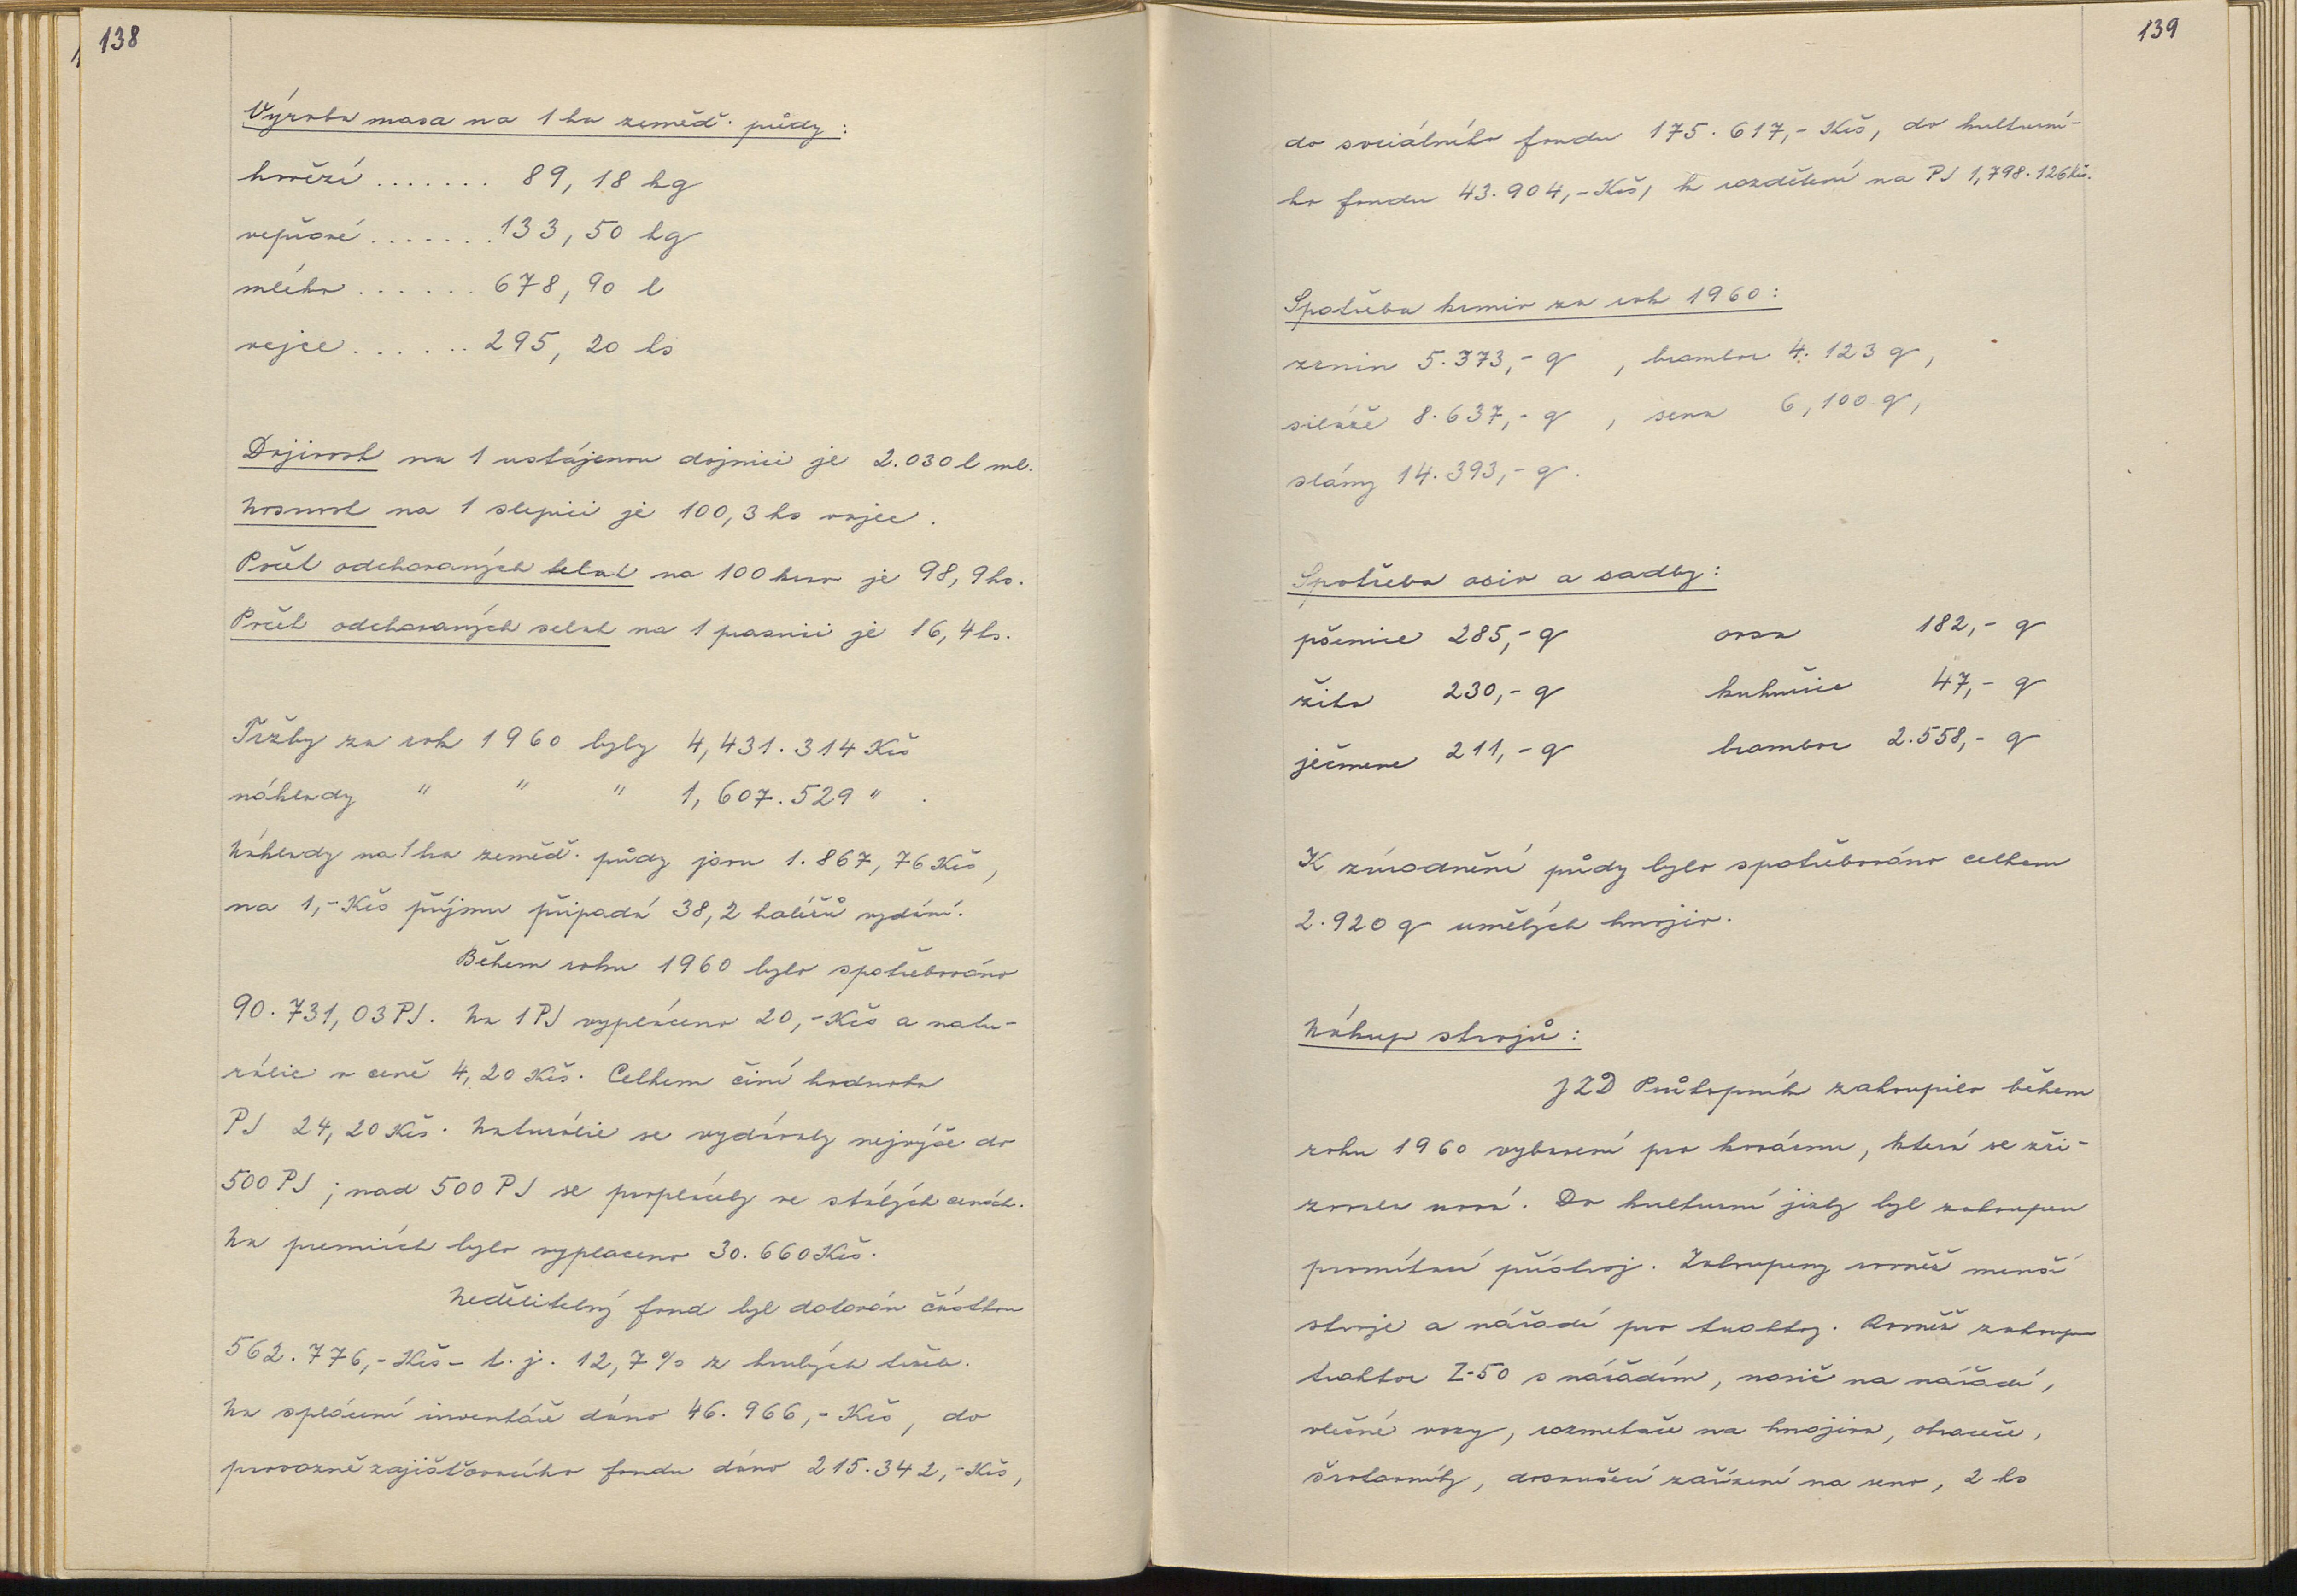 138
Výroba masa na 1 ha zeměď. půdy:
hovězí ....... 89,18 kg
vepřové ....... 133,50 kg
mléko ...... 678,90 l
vejce ...... 295,20 ks
Dojivost na 1 ustájenou dojnici je 2.030 l ml.
Nosnost na 1 slepici je 100,3 ks vajec.
Počet odchovaných telat na 100 krav je 98,9 ks.
Počet odchovaných selat na 1 prasnici je 16,4 ks.
Tržby za rok 1960 byly 4,431.314 Kčs
náklady " " " 1,607.529 " .
Náklady na 1 ha zeměď. půdy jsou 1.867,76 Kčs,
na 1,- Kčs příjmu připadá 38,2 haléřů vydání.
Během roku 1960 bylo spotřebováno
90.731,03 PJ. Na 1 PJ vypláceno 20,- Kčs a natu-
rálie v ceně 4,20 Kčs. Celkem činí hodnota
PJ 24,20 Kčs. Naturálie se vydávaly nejvýše do
500 PJ; nad 500 PJ se proplácely ve stálých cenách.
Na premiích bylo vyplaceno 30.660 Kčs.
Nedělitelný fond byl dotován částkou
562.776,- Kčs - t.j. 12,7 % z hrubých tržeb.
Na splácení inventáře dáno 46.966,- Kčs, do
provozně zajišťovacího fondu dáno 215.342,- Kčs,
139
do sociálního fondu 175.617,- Kčs, do kulturní-
ho fondu 43.904,- Kčs, k rozdělení na PJ 1,798.126 Kčs.
Spotřeba krmiv za rok 1960:
zrnin 5.373,- q , brambor 4.123 q,
siláže 8.637,- q , sena 6,100 q,
slámy 14.393,- q.
Spotřeba osiv a sadby:
pšenice 285,- q ovsa 182,- q
žita 230,- q kukuřice 47,- q
ječmene 211,- q brambor 2.558,- q
K zúrodnění půdy bylo spotřebováno celkem
2.920 q umělých hnojiv.
Nákup strojů:
JZD Průkopník zakoupilo během
roku 1960 vybavení pro kovárnu, která se zři-
zovala nová. Do kulturní jizby byl zakoupen
promítací přístroj. Zakoupeny rovněž menší
stroje a nářadí pro traktory. Rovněž zakoupen
traktor Z-50 s nářadím, nosič na nářadí,
vlečné vozy, rozmetače na hnojiva, obraceče,
šrotovníky, dosoušecí zařízení na seno, 2 ks